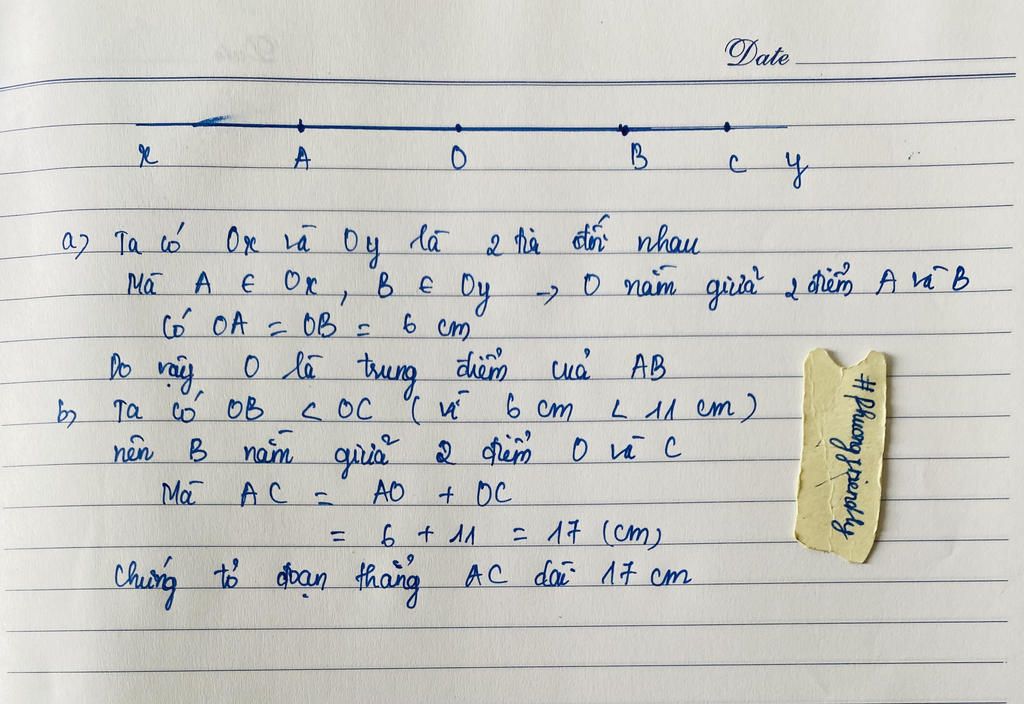 Date
x A O B C y
a) Ta có Ox và Oy là 2 tia đối nhau
Mà A ∈ Ox, B ∈ Oy → O nằm giữa 2 điểm A và B
Có OA = OB = 6 cm
Do vậy O là trung điểm của AB
b) Ta có OB < OC (vì 6 cm < 11 cm)
nên B nằm giữa 2 điểm O và C
Mà AC = AO + OC
= 6 + 11 = 17 (cm)
Chứng tỏ đoạn thẳng AC dài 17 cm
#phuongfriendly